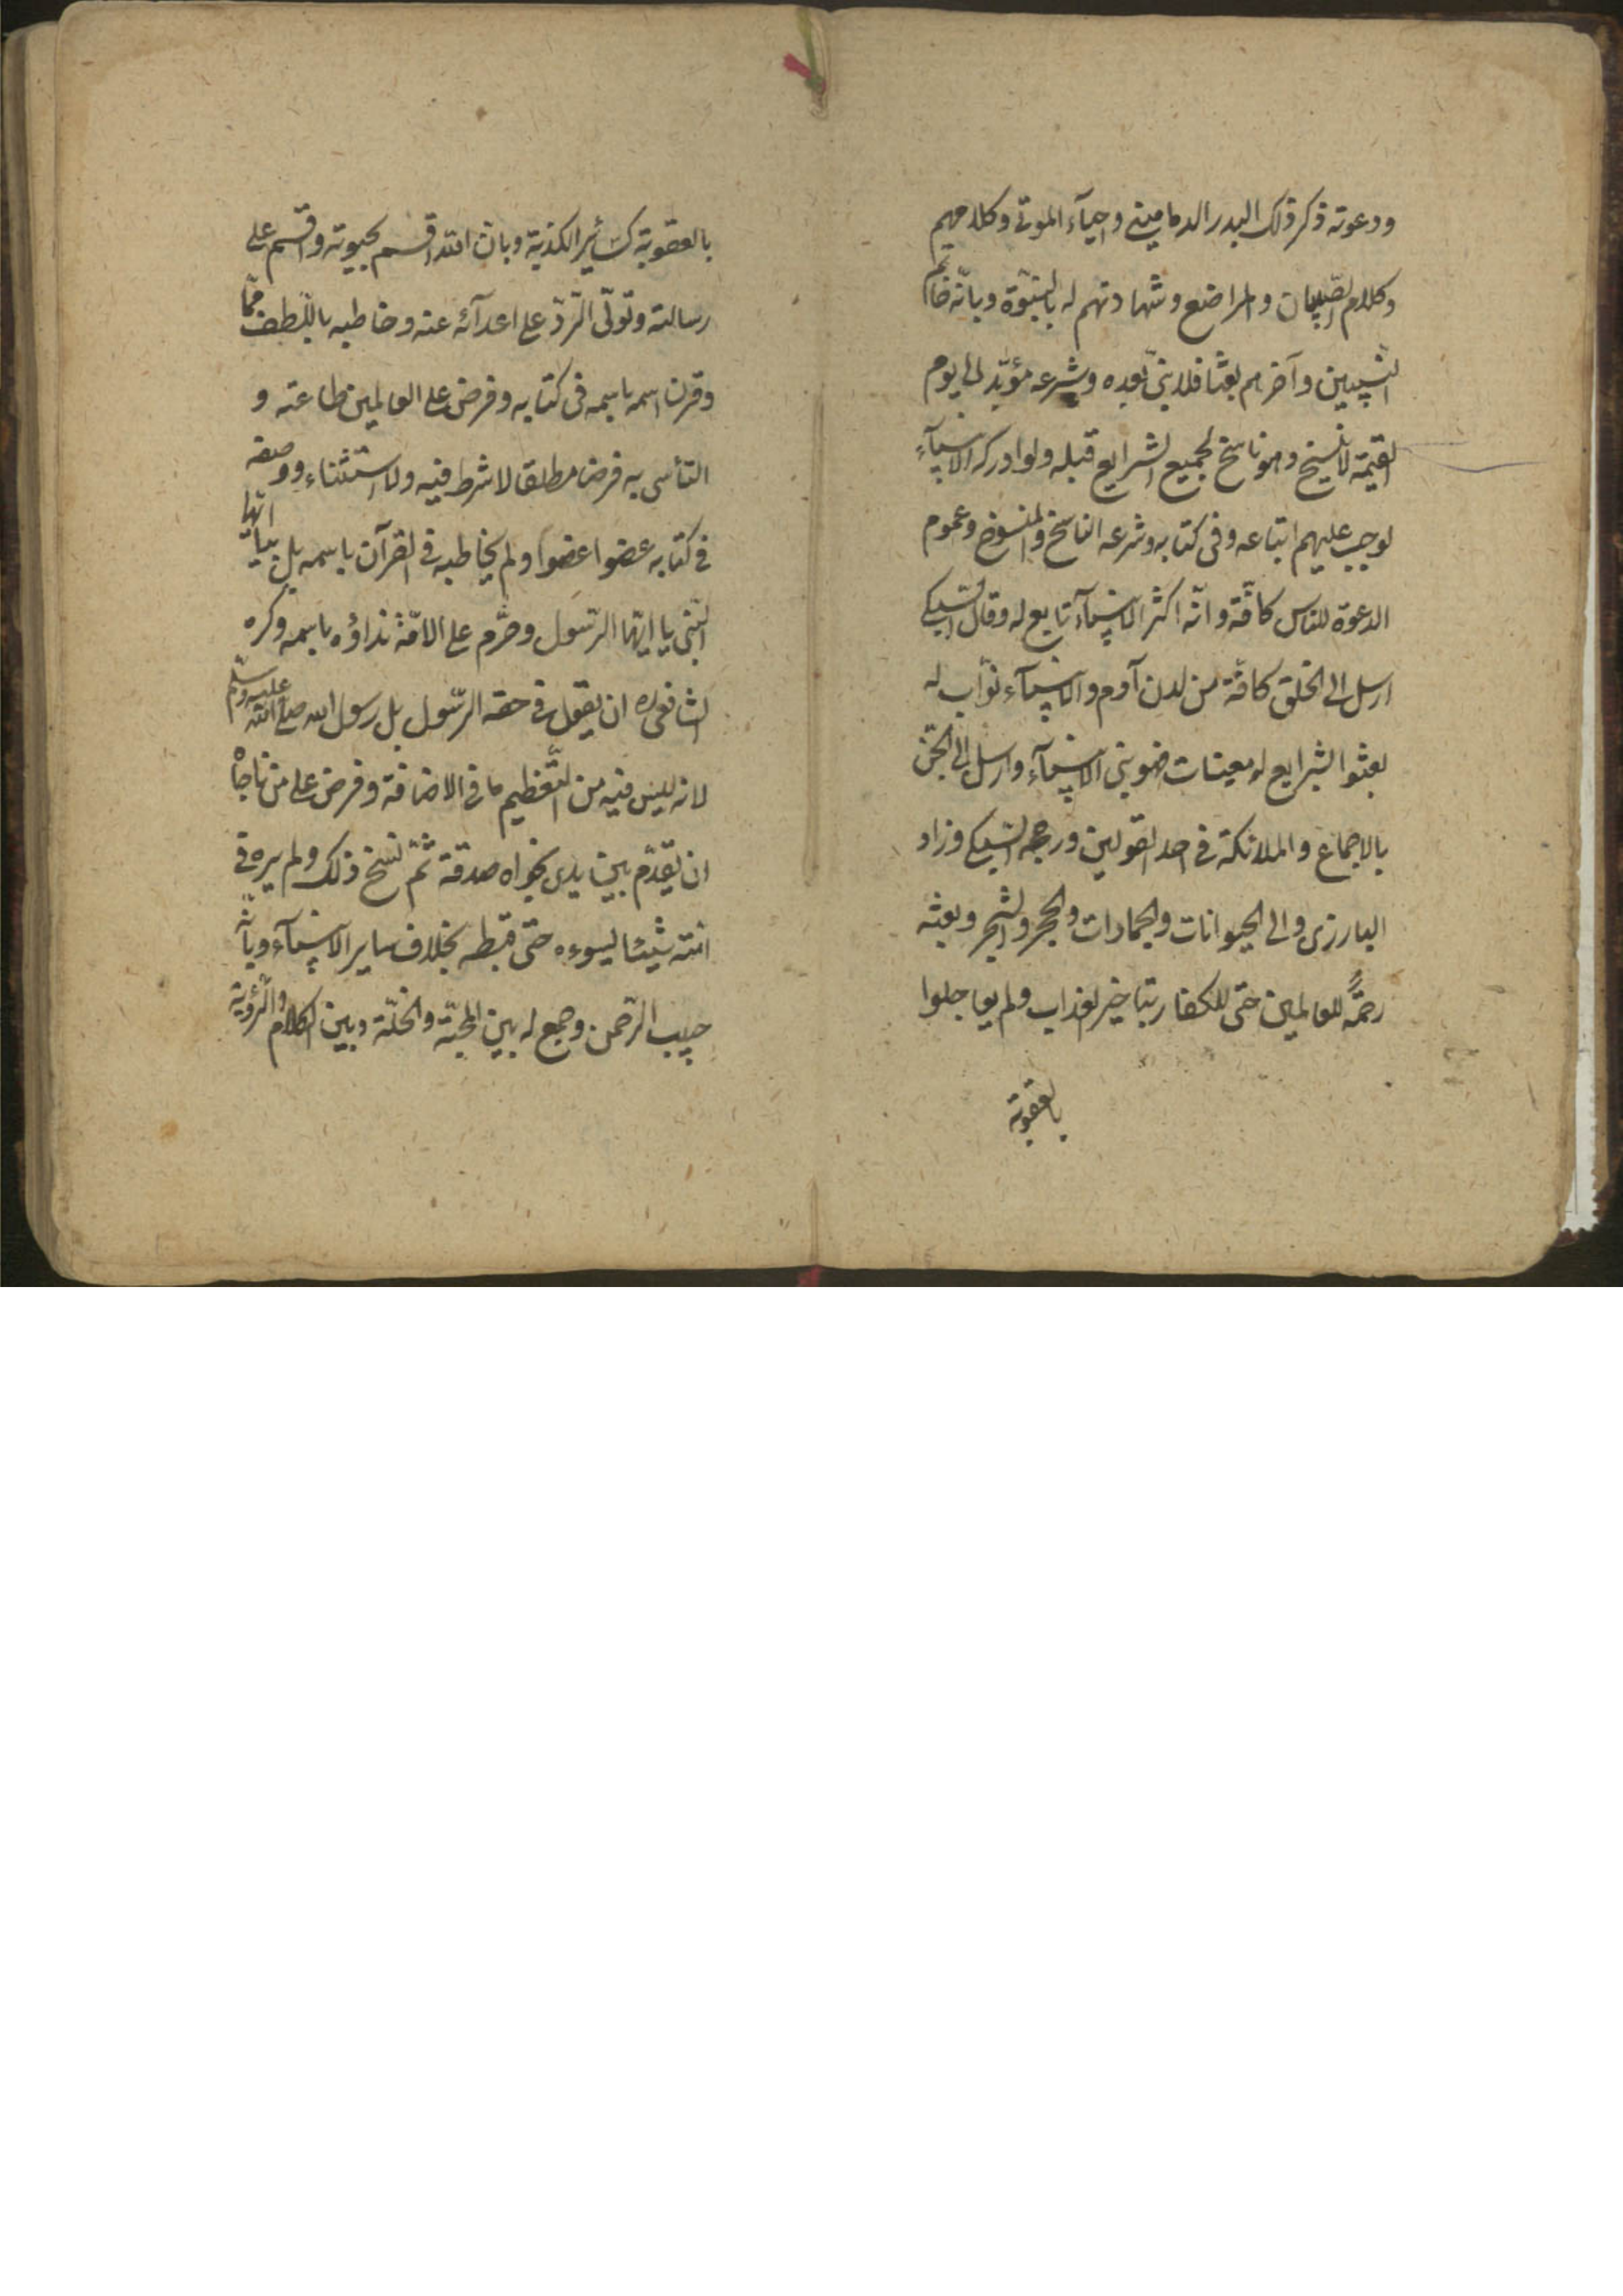 ودعوته ذكر ذلك البدر الدمامينى واحيآء الموتى وكلامهم
وكلام الصّبيان والمراضع وشهادتهم له بالنبوّة وبانّه خاتم
النّبيين وآخرهم بعثا فلا نبىّ بعده وشرعه مؤبّد الى يوم
القيمة لا ينسخ وهو ناسخ لجميع الشرايع قبله ولو ادركه الانبيآء
لوجب عليهم اتباعه وفى كتابه وشرعه الناسخ والمنسوخ وعموم
الدعوة للناس كافّة وانّه اكثر الانبيآء تابع له وقال السّبكى
ارسل الى الخلق كافّة من لدن آدم والانبيآء نوّاب له
بعثوا بشرايع له معينات فهو نبى الانبيآء وارسل الى الجنّ
بالاجماع والملائكة فى احد القولين ورجحه السّبكى وزاد
البارزى والى الحيوانات والجمادات والحجر والشجر وبعثه
رحمةً للعالمين حتى للكفار بتاخير العذاب ولم يعاجلوا
بالعقوبة
بالعقوبة كسائر الكذبة وبان الله اقسم بحيوته واقسم على
رسالته وتولّى الردّ على اعدآئه عنه وخاطبه باللّطف ممّا
وقرن اسمه باسمه فى كتابه وفرض على العالمين طاعته و
التأسى به فرضا مطلقا لا شرط فيه ولا استثناء ووصفه
فى كتابه عضوا عضوا ولم يخاطبه فى القرآن باسمه بل بيا ايّها
النّبى يا ايّها الرّسول وحرّم على الامّة نداؤه باسمه وكره
الشافعى ره ان يقول فى حقه الرّسول بل رسول الله صلى الله عليه وسلّم
لانه ليس فيه من التّعظيم ما فى الاضافة وفرض على من ناجاه
ان يقدّم بين يدى نجواه صدقة ثمّ نسخ ذلك ولم يره فى
امّته شيئا ليسوءه حتّى قبطه بخلاف ساير الانبيآء وبانّه
حبيب الرّحمن وجمع له بين المحبّة والخلّة وبين الكلام والرّؤية